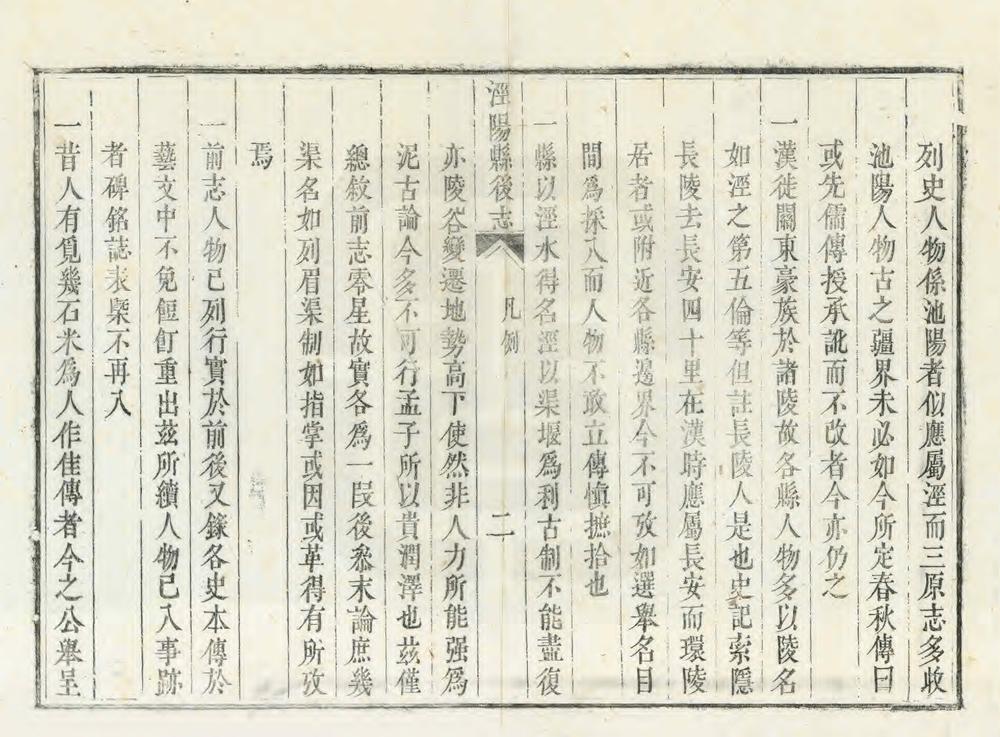 列史人物係池陽者似應屬涇而三原志多收
池陽人物古之疆界未必如今所定春秋傳曰
或先儒傳授承訛而不改者今亦仍之
一漢徙關東豪族於諸陵故各縣人物多以陵名
如涇之第五倫等但註長陵人是也史記索隱
長陵去長安四十里在漢時應屬長安而環陵
居者或附近各縣邊界今不可攷如選舉名目
間為採入而人物不敢立傳慎摭拾也
一縣以涇水得名涇以渠堰為利古制不能盡復
涇陽縣後志 凡例 二
亦陵谷變遷地勢高下使然非人力所能强為
泥古論今多不可行孟子所以貴潤澤也茲僅
總敘前志零星故實各為一段後叅末論庶幾
渠名如列眉渠制如指掌或因或革得有所攷
焉
一前志人物已列行實於前後又錄各史本傳於
藝文中不免餖飣重出茲所續人物已入事跡
者碑銘誌表槩不再入
一昔人有覓幾石米為人作佳傳者今之公舉呈